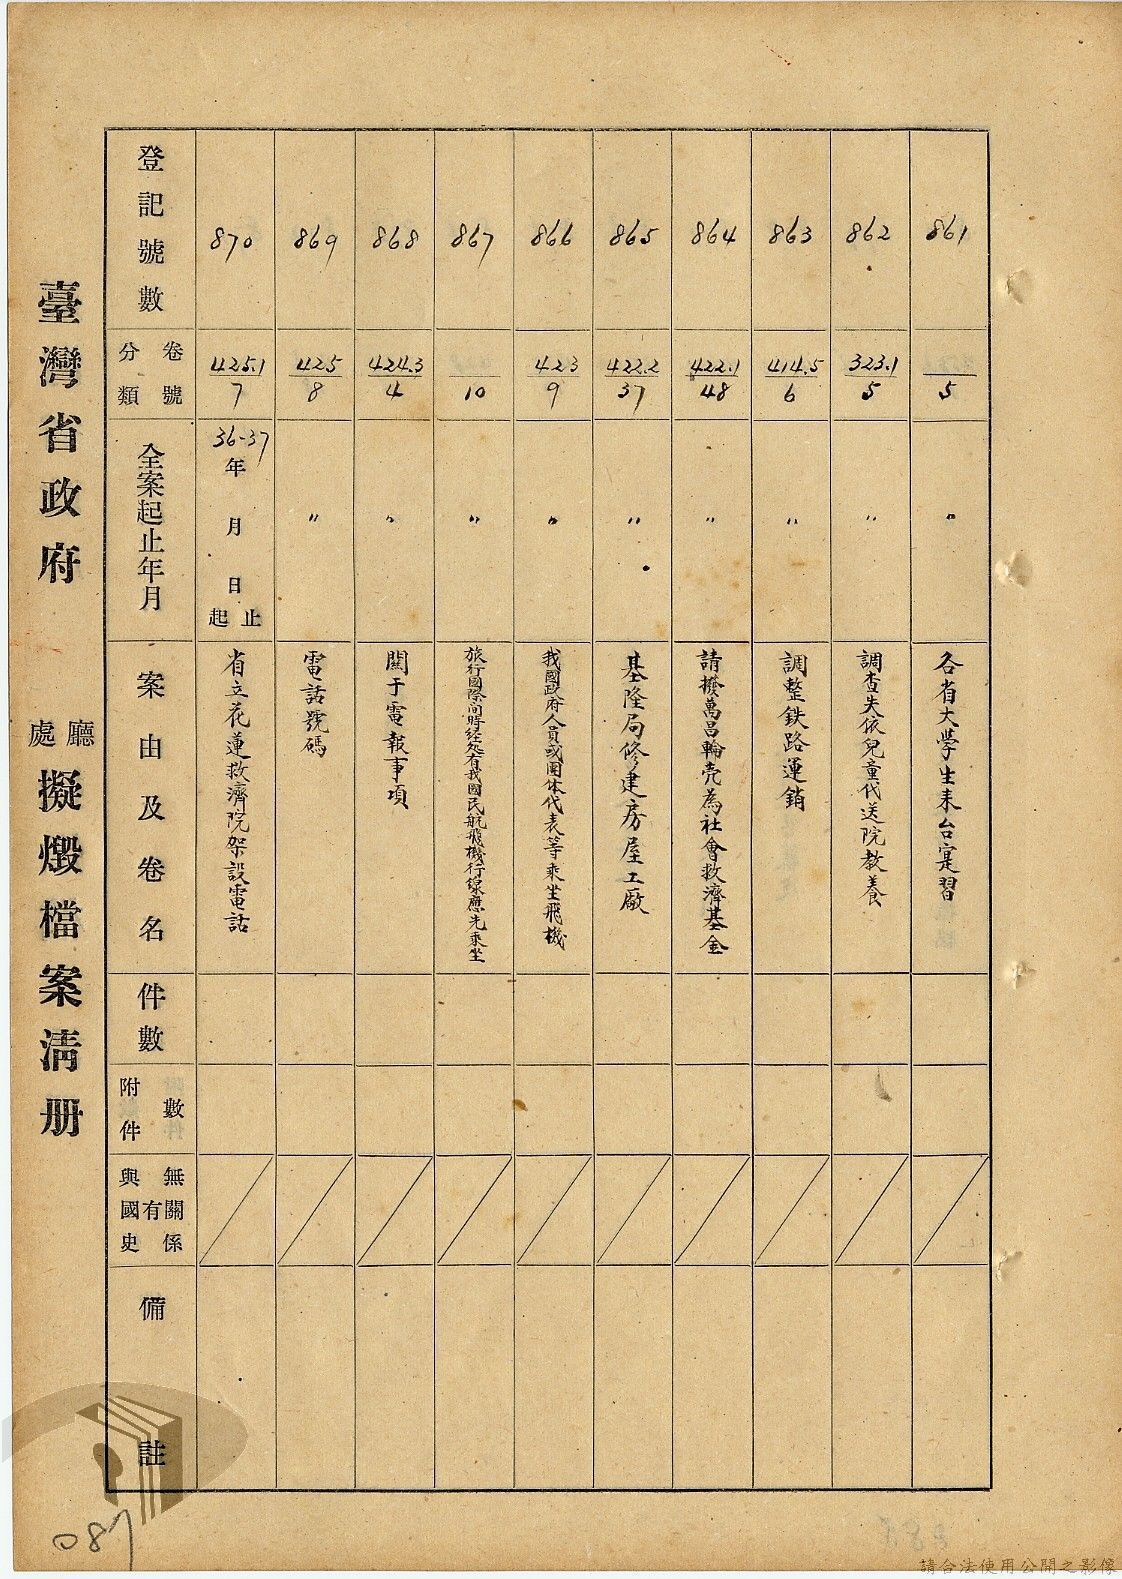 臺灣省政府 廳處 擬燬檔案清册
登記號數
分類卷號
全案起止年月
案由及卷名
件數
附件數
與國史有無關係
備註
870
425.1/7
36-37年 月 日起止
省立花蓮救濟院架設電話
869
425/8
〃
電話號碼
868
424.3/4
〃
關于電報事項
867
10
〃
旅行國際間時経処有我國民航飛機行線應先乘坐
866
423/9
〃
我國政府人員或團体代表等乘坐飛機
865
422.2/37
〃
基隆局修建房屋工廠
864
422.1/48
〃
請撥萬昌輪壳為社會救濟基金
863
414.5/6
〃
調整鉄路運銷
862
323.1/5
〃
調查失依兒童代送院教養
861
5
〃
各省大學生來台寔習
087
請合法使用公開之影像